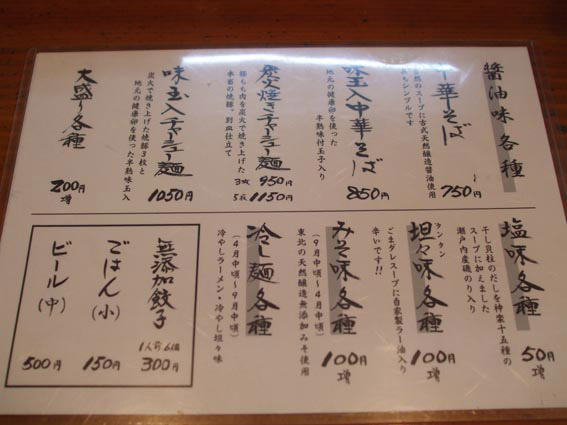 醤油味 各種
中華そば
自然のスープに古式天然醸造醤油使用
ともシンプルです
750円
味玉入中華そば
地元の健康卵を使った
半熟味付玉子入り
850円
炭火焼きチャーシュー麺
豚もも肉を炭火で焼き上げた
本家の焼豚、別皿仕立て
3枚 950円
5枚 1150円
味玉入チャーシュー麺
炭火で焼き上げた焼豚3枚と
地元の健康卵を使った半熟味玉入
1050円
大盛り各種
200円
増
塩味各種
干し貝柱のだしを神楽十五種の
スープに加えました
瀬戸内産磯のり入り
50円
増
タンタン
坦々味各種
ごまダレスープに自家製ラー油入り
辛いです!!
100円
増
みそ味各種
(9月中頃～4月中頃)
東北の天然醸造無添加みそ使用
100円
増
冷し麺各種
(4月中頃～9月中頃)
冷やしラーメン・冷やし坦々味
無添加餃子
1人前 6個
300円
ごはん(小)
150円
ビール(中)
500円